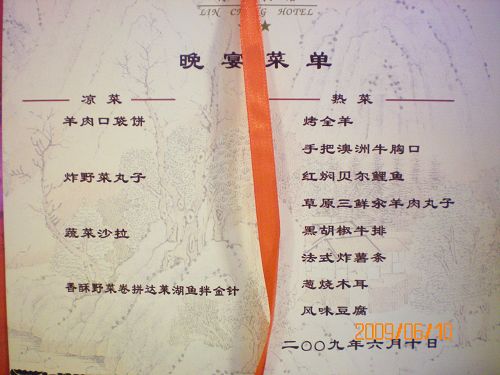 LIN C NG HOTEL
晚宴菜单
凉菜
羊肉口袋饼
炸野菜丸子
蔬菜沙拉
香酥野菜卷拼达莱湖鱼拌金针
热菜
烤全羊
手把澳洲牛胸口
红焖贝尔鲤鱼
草原三鲜汆羊肉丸子
黑胡椒牛排
法式炸薯条
葱烧木耳
风味豆腐
二〇〇九年六月十日
2009/06/10